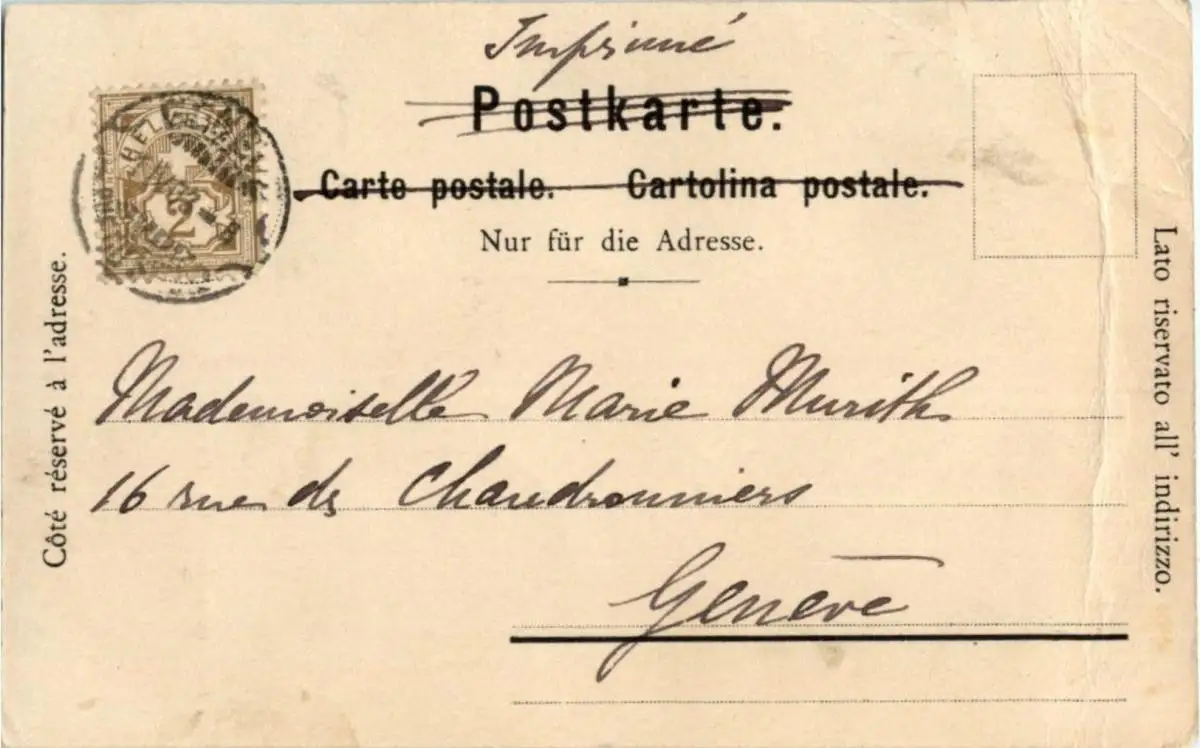 Imprimé
Postkarte.
Carte postale. Cartolina postale.
Nur für die Adresse.
Côté réservé à l'adresse.
Lato riservato all' indirizzo.
2
Mademoiselle Marie Murith
16 rue des Chaudronniers
Genève